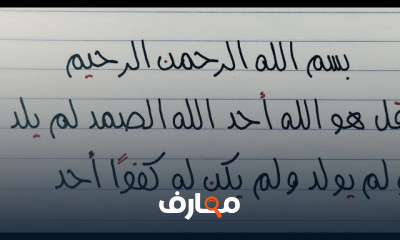 بسم الله الرحمن الرحيم
قل هو الله أحد الله الصمد لم يلد
و لم يولد ولم يكن له كفوًا أحد
معارف